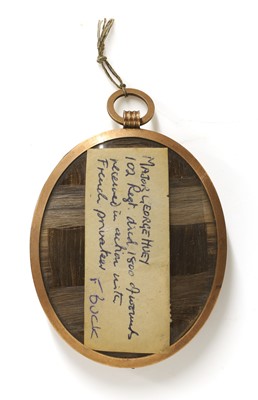 MAJOR GEORGE HUEY
102 Regt. died 1800 of wounds
received in action with
French privateer
F BUCK